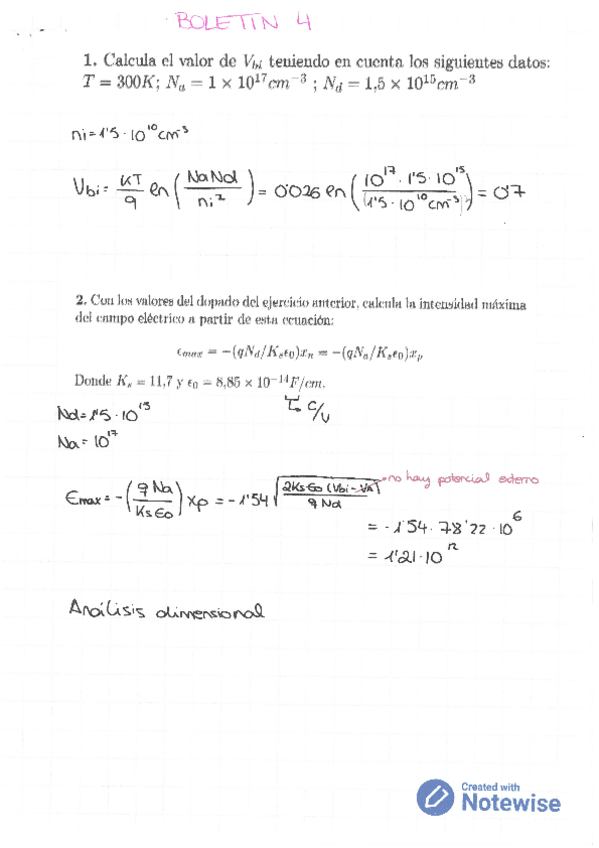 BOLETIN 4
1. Calcula el valor de V_bi teniendo en cuenta los siguientes datos:
T = 300K; N_a = 1 × 10^17 cm^-3 ; N_d = 1,5 × 10^15 cm^-3
ni = 1'5 · 10^10 cm^-3
V_bi = KT/q en (NaNd/ni^2) = 0'026 en (10^17 · 1'5 · 10^15/(1'5 · 10^10 cm^-3)^2) = 0'7
2. Con los valores del dopado del ejercicio anterior, calcula la intensidad máxima
del campo eléctrico a partir de esta ecuación:
ϵ_max = −(qN_d/K_sϵ_0)x_n = −(qN_a/K_sϵ_0)x_p
Donde K_s = 11,7 y ϵ_0 = 8,85 × 10^−14 F/cm.
Nd = 1'5 · 10^15
C/V
Na = 10^17
ϵmax = -(q Na/Ks ϵo) xp = -1'54 √(2Ks ϵo (Vbi - VA)/q Nd)
no hay potencial externo
= -1'54 · 78'22 · 10^6
= 1'21 · 10^12
Análisis dimensional
Created with
Notewise